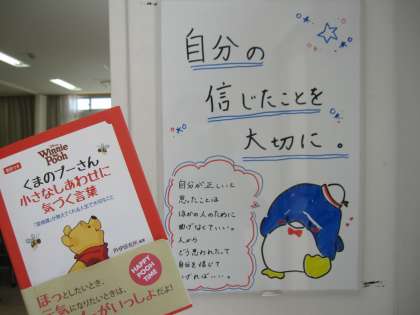 自分の
信じたことを
大切に。
自分が正しいと
思ったことは
ほかの人のために
曲げなくていい。
人から
どう思われたって
自分を信じて
いればいい。
Disney
Winnie
the
Pooh
くまのプーさん
小さなしあわせに
気づく言葉
PHP研究所
HAPPY
POOH
TIME
ほっとしたいとき、
元気になりたいときは、
がいっしょだよ!